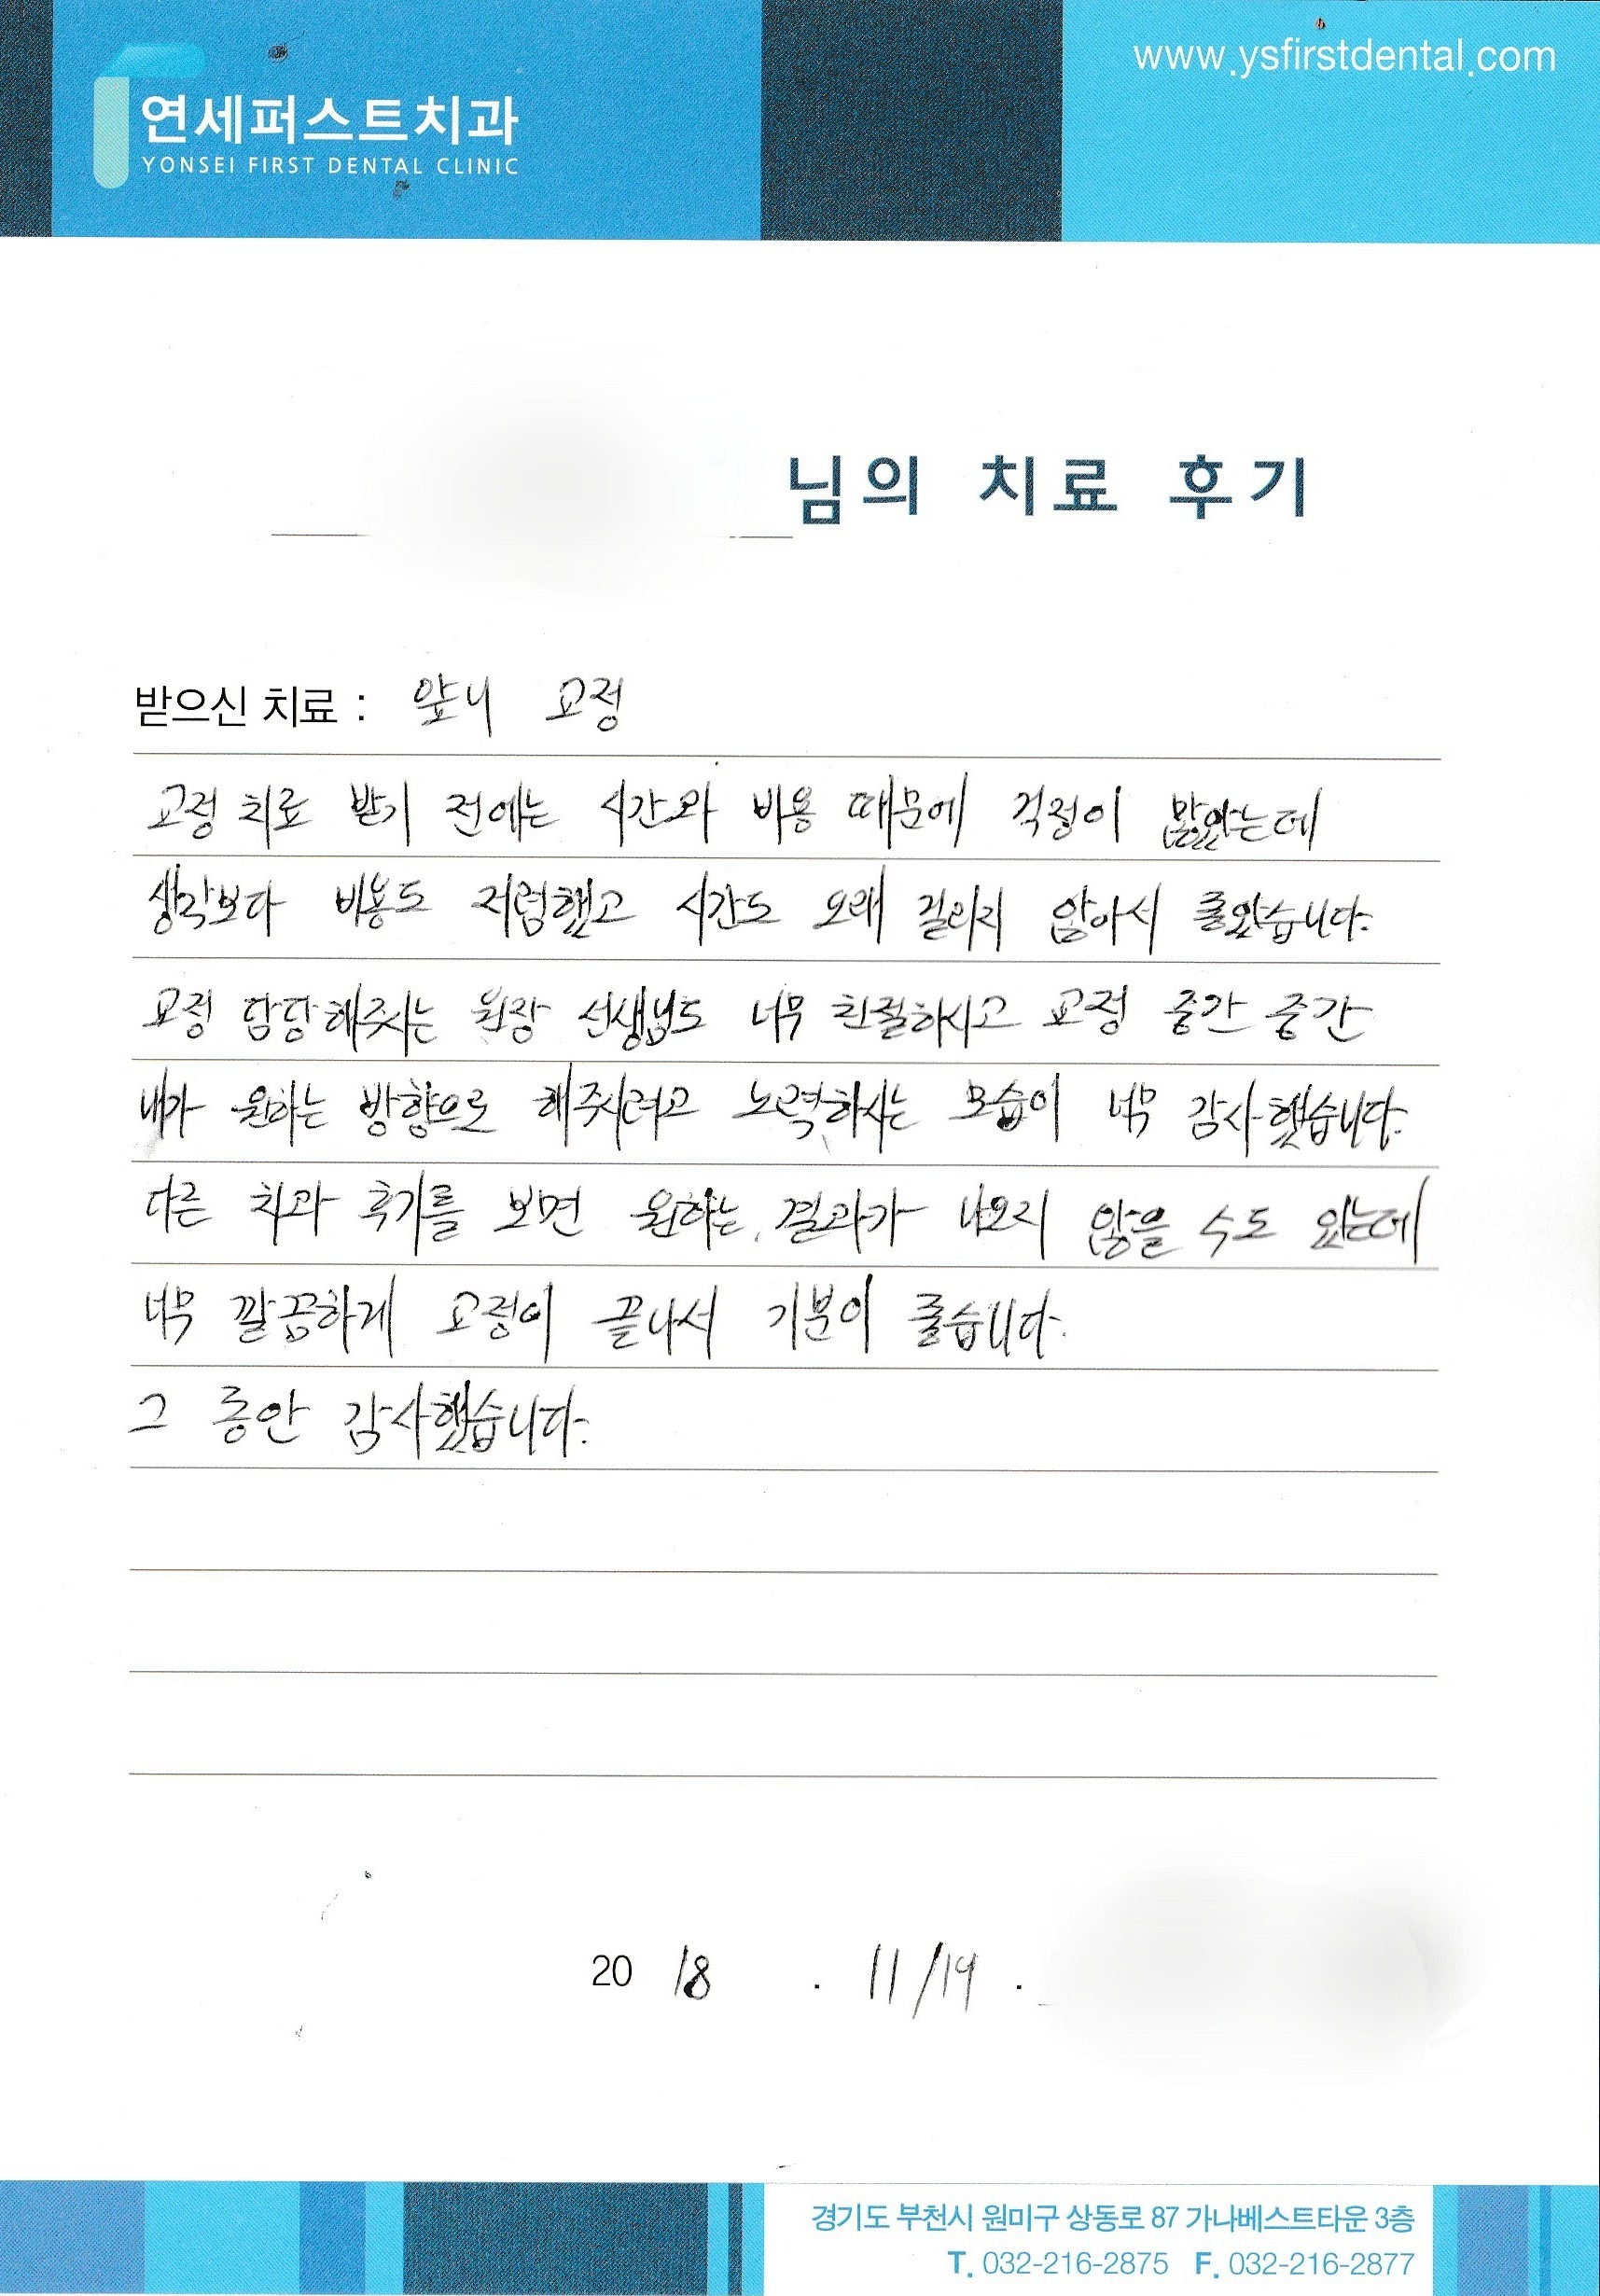 www.ysfirstdental.com
연세퍼스트치과
YONSEI FIRST DENTAL CLINIC
님의 치료 후기
받으신 치료 : 앞니 교정
교정 치료 받기 전에는 시간과 비용 때문에 걱정이 많았는데
생각보다 비용도 저렴했고 시간도 오래 걸리지 않아서 좋았습니다.
교정 담당해주시는 원장 선생님도 너무 친절하시고 교정 중간 중간
내가 원하는 방향으로 해주시려고 노력하시는 모습이 너무 감사했습니다.
다른 치과 후기를 보면 원하는 결과가 나오지 않을 수도 있는데
너무 깔끔하게 교정이 끝나서 기분이 좋습니다.
그 동안 감사했습니다.
20 18 . 11/19 .
경기도 부천시 원미구 상동로 87 가나베스트타운 3층
T. 032-216-2875 F. 032-216-2877